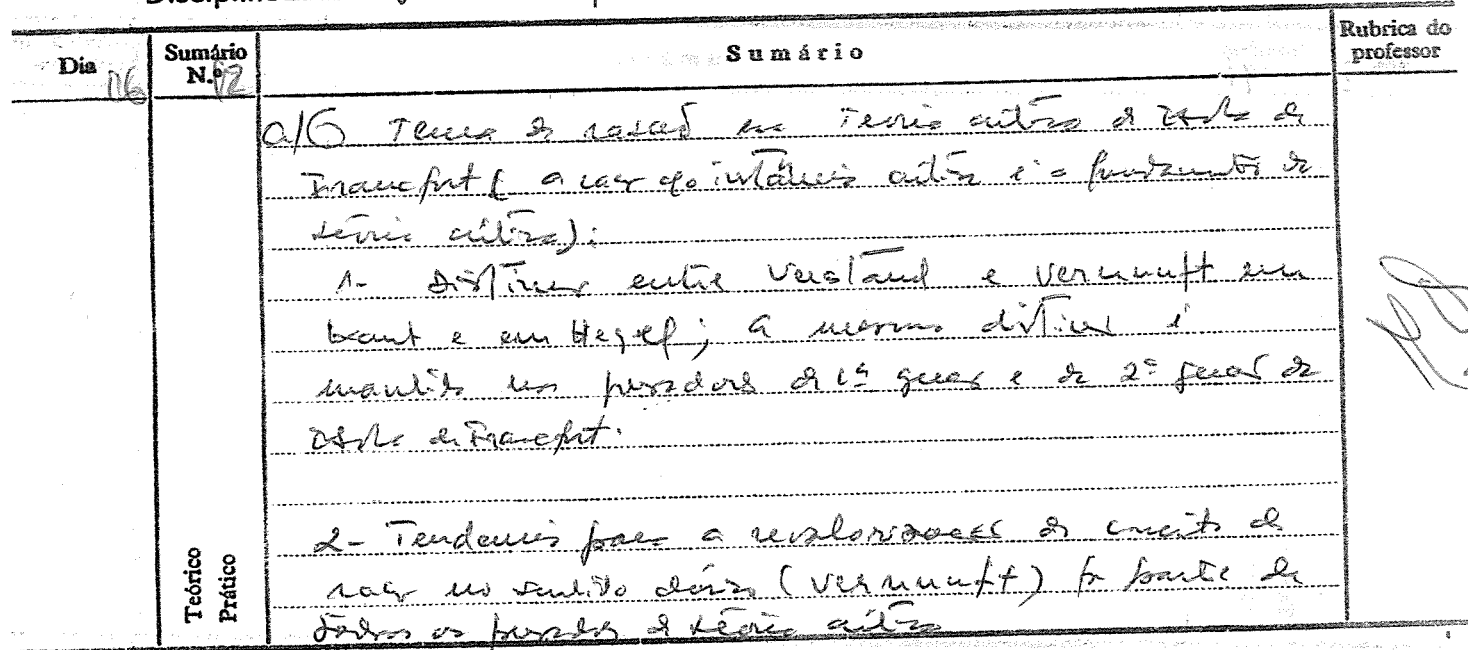 Dia
Sumário N.º 12
Sumário
Rubrica do professor
16
a/6 Tema da razão na Teoria crítica da Escola de
Francfort (a razão qo instância crítica é o fundamento da
teoria crítica):
1- Distinção entre Verstand e Vernunft em
Kant e em Hegel; a mesma distinção é
mantida nos pensadores da 1ª geração e da 2ª geração da
Escola de Francfort.
2- Tendência para a revalorização do conceito de
razão no sentido clássico (Vernunft) por parte de
todos os pensadores da teoria crítica
Teórico
Prático